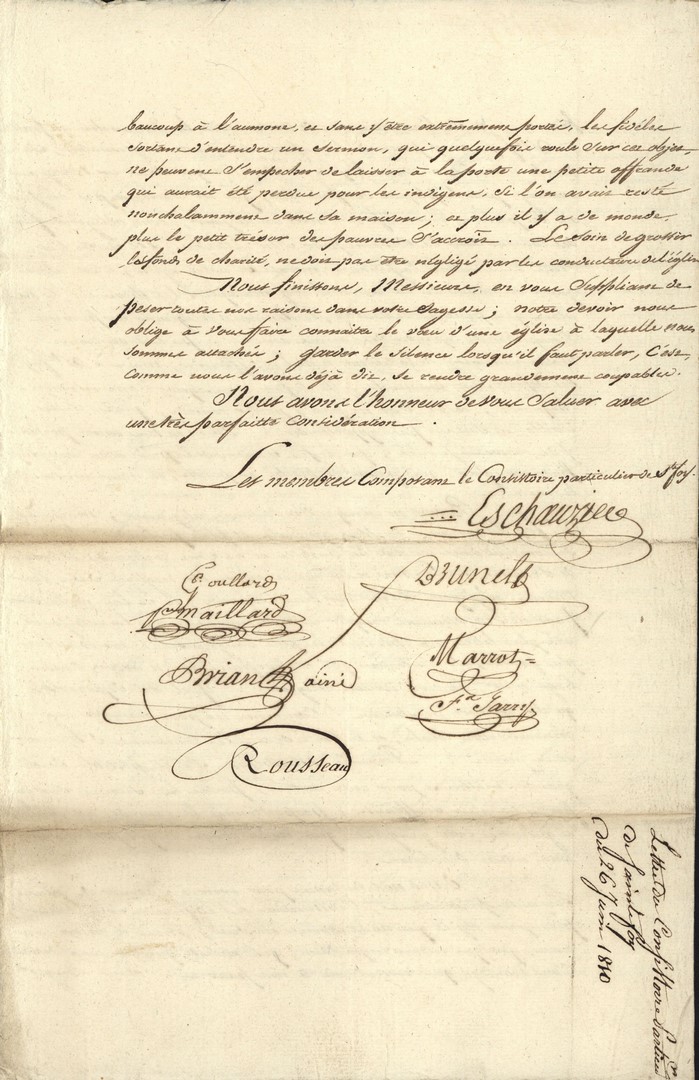 baucoup à l'aumone, et sans y être extrêmement portés, les fidèles
sortant d'entendre un Sermon, qui quelquefois roule sur cet objet,
ne peuvent s'empecher de laisser à la porte une petite offrande
qui aurait été perdue pour les indigens, si l'on avait resté
nonchalamment dans sa maison; et plus il y a de monde,
plus le petit trésor des pauvres s'accroit. Le soin de grossir
les fonds de charité, ne doit pas être négligé par les conducteurs de l'église
Nous finissons, Messieurs, en vous suppliant de
peser toutes nos raisons dans votre sagesse; notre devoir nous
oblige à vous faire connaitre le vœu d'une église à laquelle nous
sommes attachés; garder le silence lorsqu'il faut parler, c'est,
comme nous l'avons déjà dit, se rendre grandement coupables.
Nous avons l'honneur de vous saluer avec
une très parfaitte considération.
Les membres composant le Consistoire particulier de Ste foy.
Eschauzier
Goullard
Brunet
Maillard
Marrot
Briand ainé
Fs. Jarry
Rousseau
Lettre du Consistoire Partier
de Sainte foy
du 26 Juin 1810